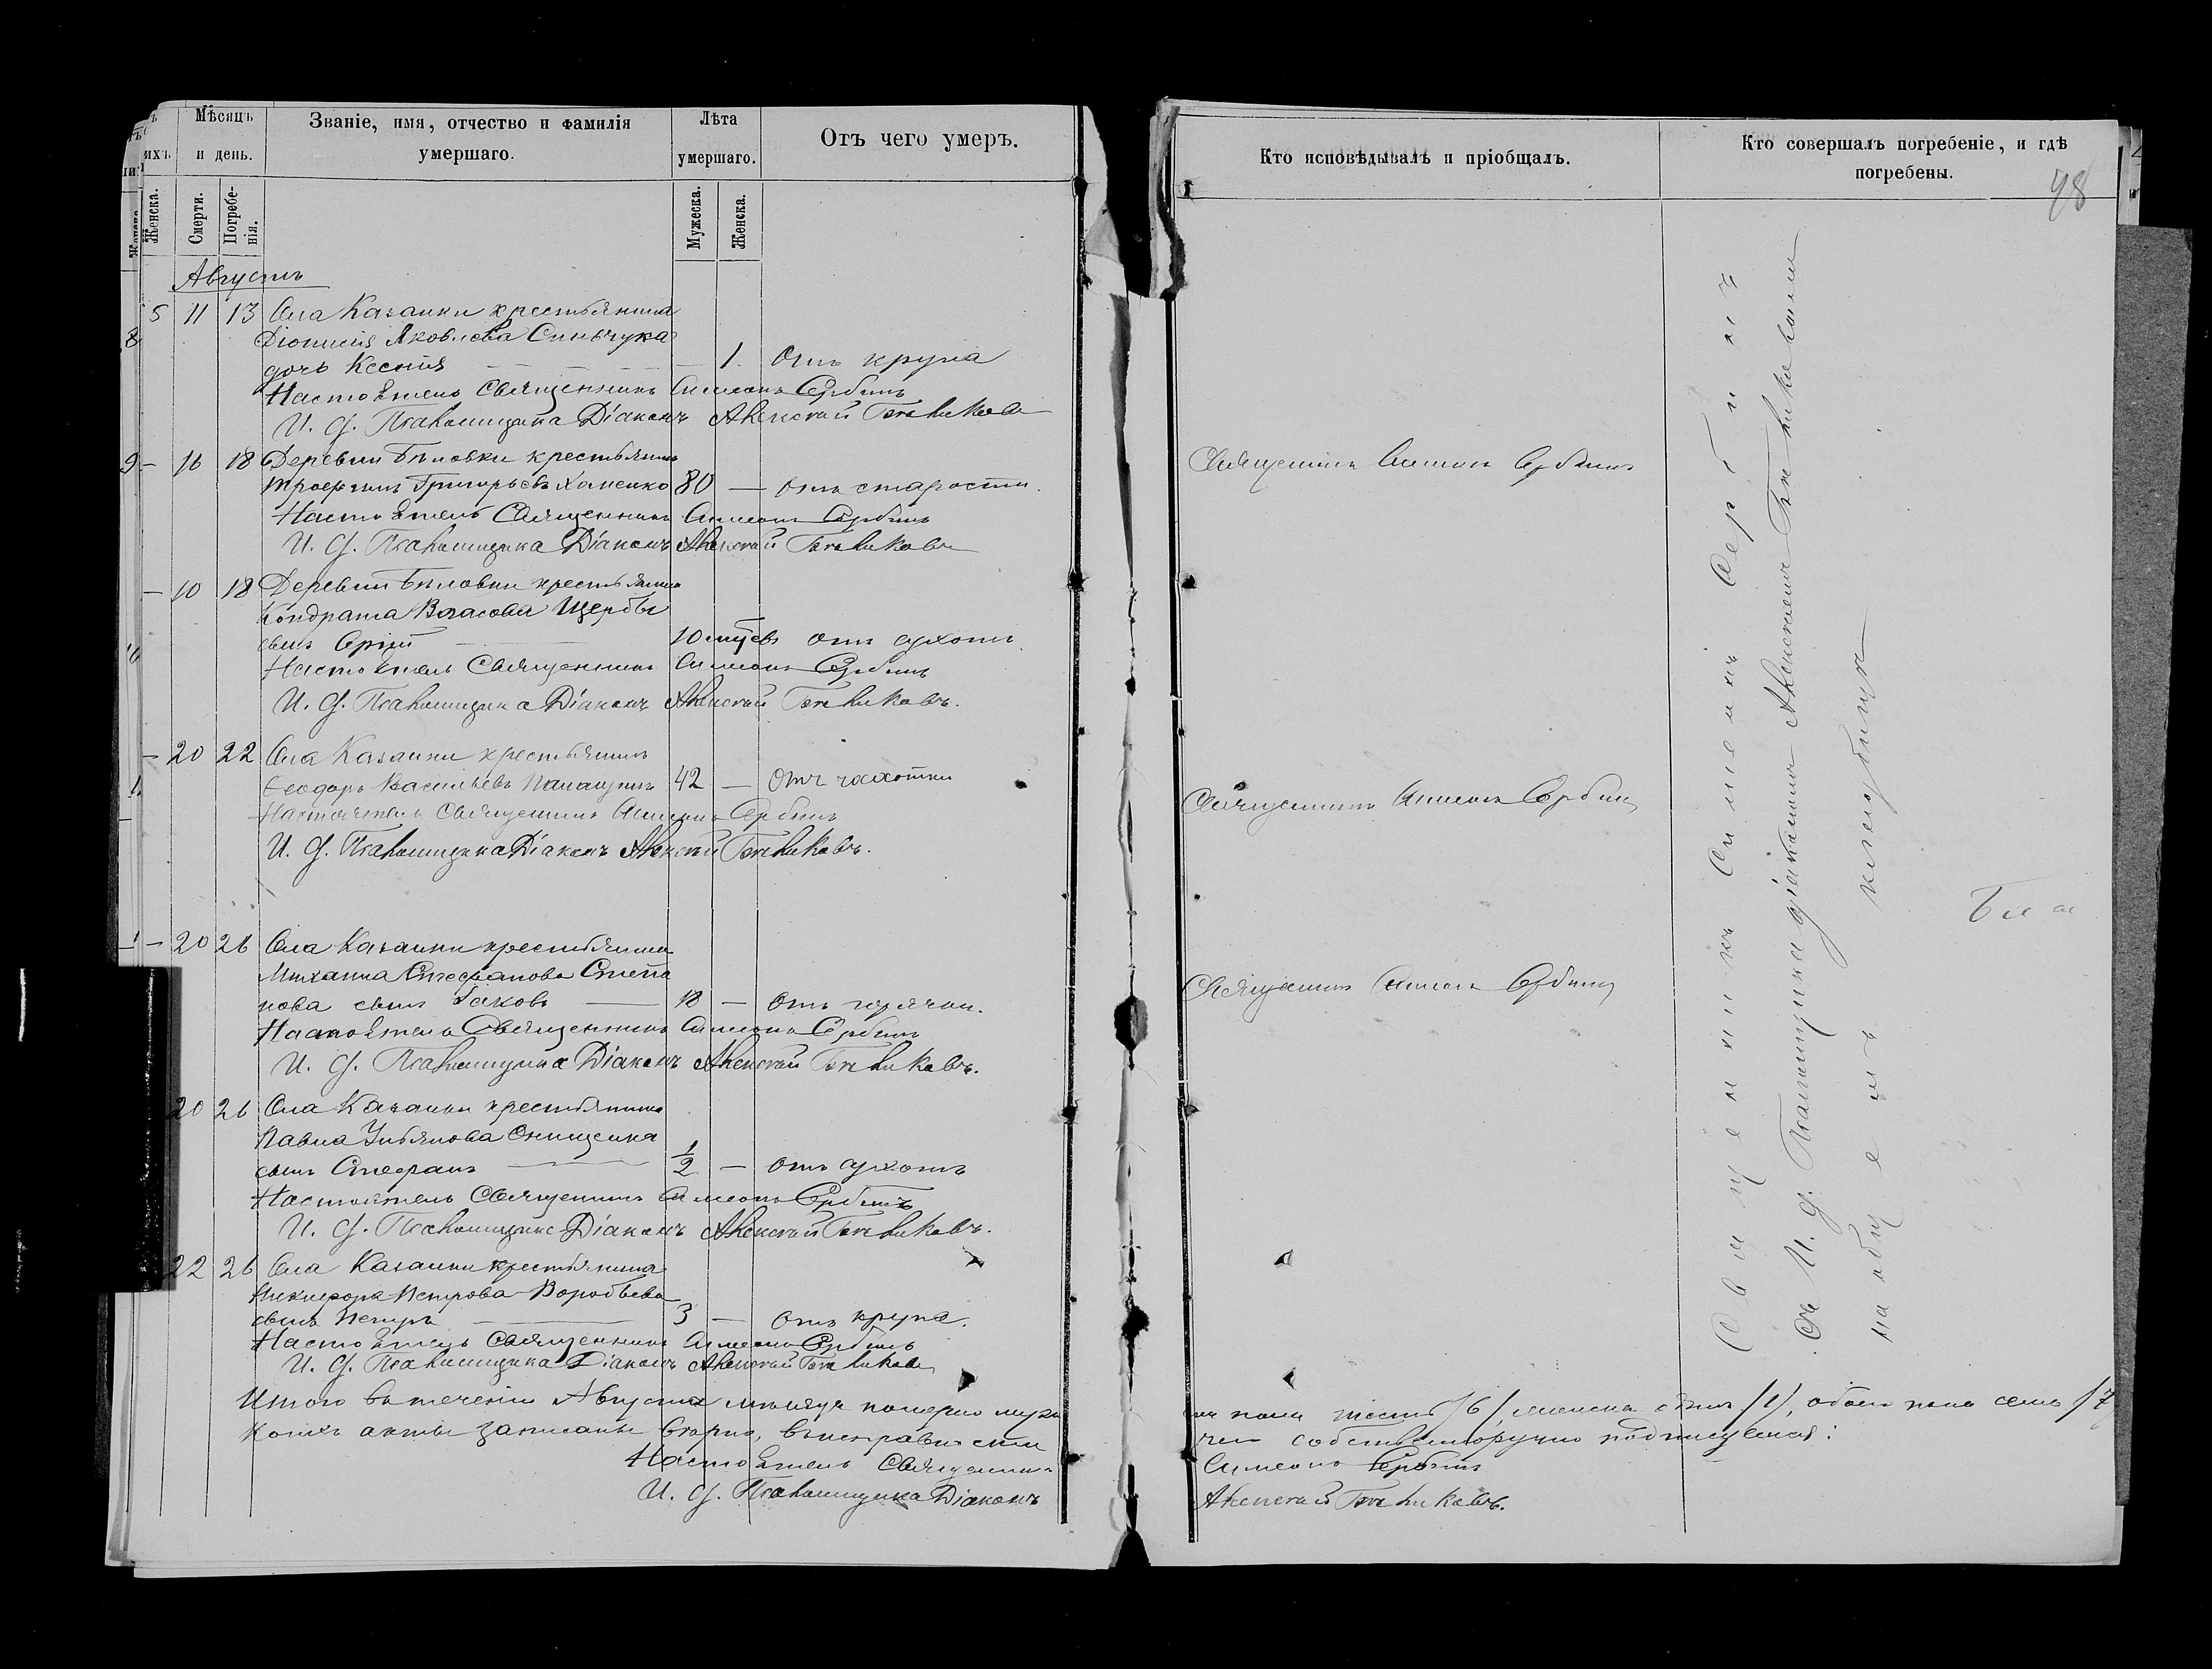 Мѣсяцъ и день.
Званіе, имя, отчество и фамилія умершаго.
Лѣта умершаго.
Отъ чего умеръ.
Кто исповѣдывалъ и пріобщалъ.
Кто совершалъ погребеніе, и гдѣ погребены.
98
Женска.
Смерти.
Погребенія.
Мужеска.
Женска.
Августъ
5 11 13 Села Казанки крестьянина
Діонисія Яковлева Синьчука
дочь Ксенія — 1. Отъ крупа
Настоятель Священникъ Симеонъ Сербинъ
И. д. Псаломщика Діаконъ Алексѣй
9 — 16 18 Деревни Бѣловки крестьянинъ
Григорьевъ Хоменко 80 — отъ старости. Священникъ Симеонъ Сербинъ
Настоятель Священникъ Симеонъ Сербинъ
И. д. Псаломщика Діаконъ Алексѣй
— 10 18 Деревни Бѣловки крестьянина
Кондрата Власова Щербы
сынъ 10 мцевъ отъ сухотъ
Настоятель Священникъ Симеонъ Сербинъ
И. д. Псаломщика Діаконъ Алексѣй
— 20 22 Села Казанки крестьянинъ
Ѳеодоръ Васильевъ 42 — Отъ чахотки Священникъ Симеонъ Сербинъ
Настоятель Священникъ Симеонъ Сербинъ
И. д. Псаломщика Діаконъ Алексѣй
— 20 26 Села Казанки крестьянина
Михаила Стефанова Степа
нова сынъ Іаковъ — 18 — Отъ горячки. Священникъ Симеонъ Сербинъ
Настоятель Священникъ Симеонъ Сербинъ
И. д. Псаломщика Діаконъ Алексѣй
20 26 Села Казанки крестьянина
Павла Ульянова Онищенка
сынъ Стефанъ — 1/2 — отъ сухотъ
Настоятель Священникъ Симеонъ Сербинъ
И. д. Псаломщика Діаконъ Алексѣй
22 26 Села Казанки крестьянина
Никифора Петрова Воробьева
сынъ Петръ — 3 — отъ крупа.
Настоятель Священникъ Симеонъ Сербинъ
И. д. Псаломщика Діаконъ Алексѣй
Итого въ теченіи Августа мѣсяца померло муже пола шесть /6/, женска одна /1/, обоего пола семь /7/
коихъ акты записаны вѣрно, въ исправности чего собственноручно подписуемся:
Настоятель Священникъ Симеонъ Сербинъ
И. д. Псаломщика Діаконъ Алексѣй
Священникъ Симеонъ Сербинъ
съ И. д. Псаломщика діакономъ Алексѣемъ
на общемъ кладбищѣ